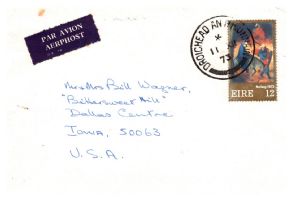 PAR AVION
AERPHOST
DROICHEAD AN
11
73
Nollaig 1973
EIRE 12
Mr & Mrs Bill Wagner,
"Bittersweet Hill"
Dallas Centre
Iowa, 50063
U.S.A.